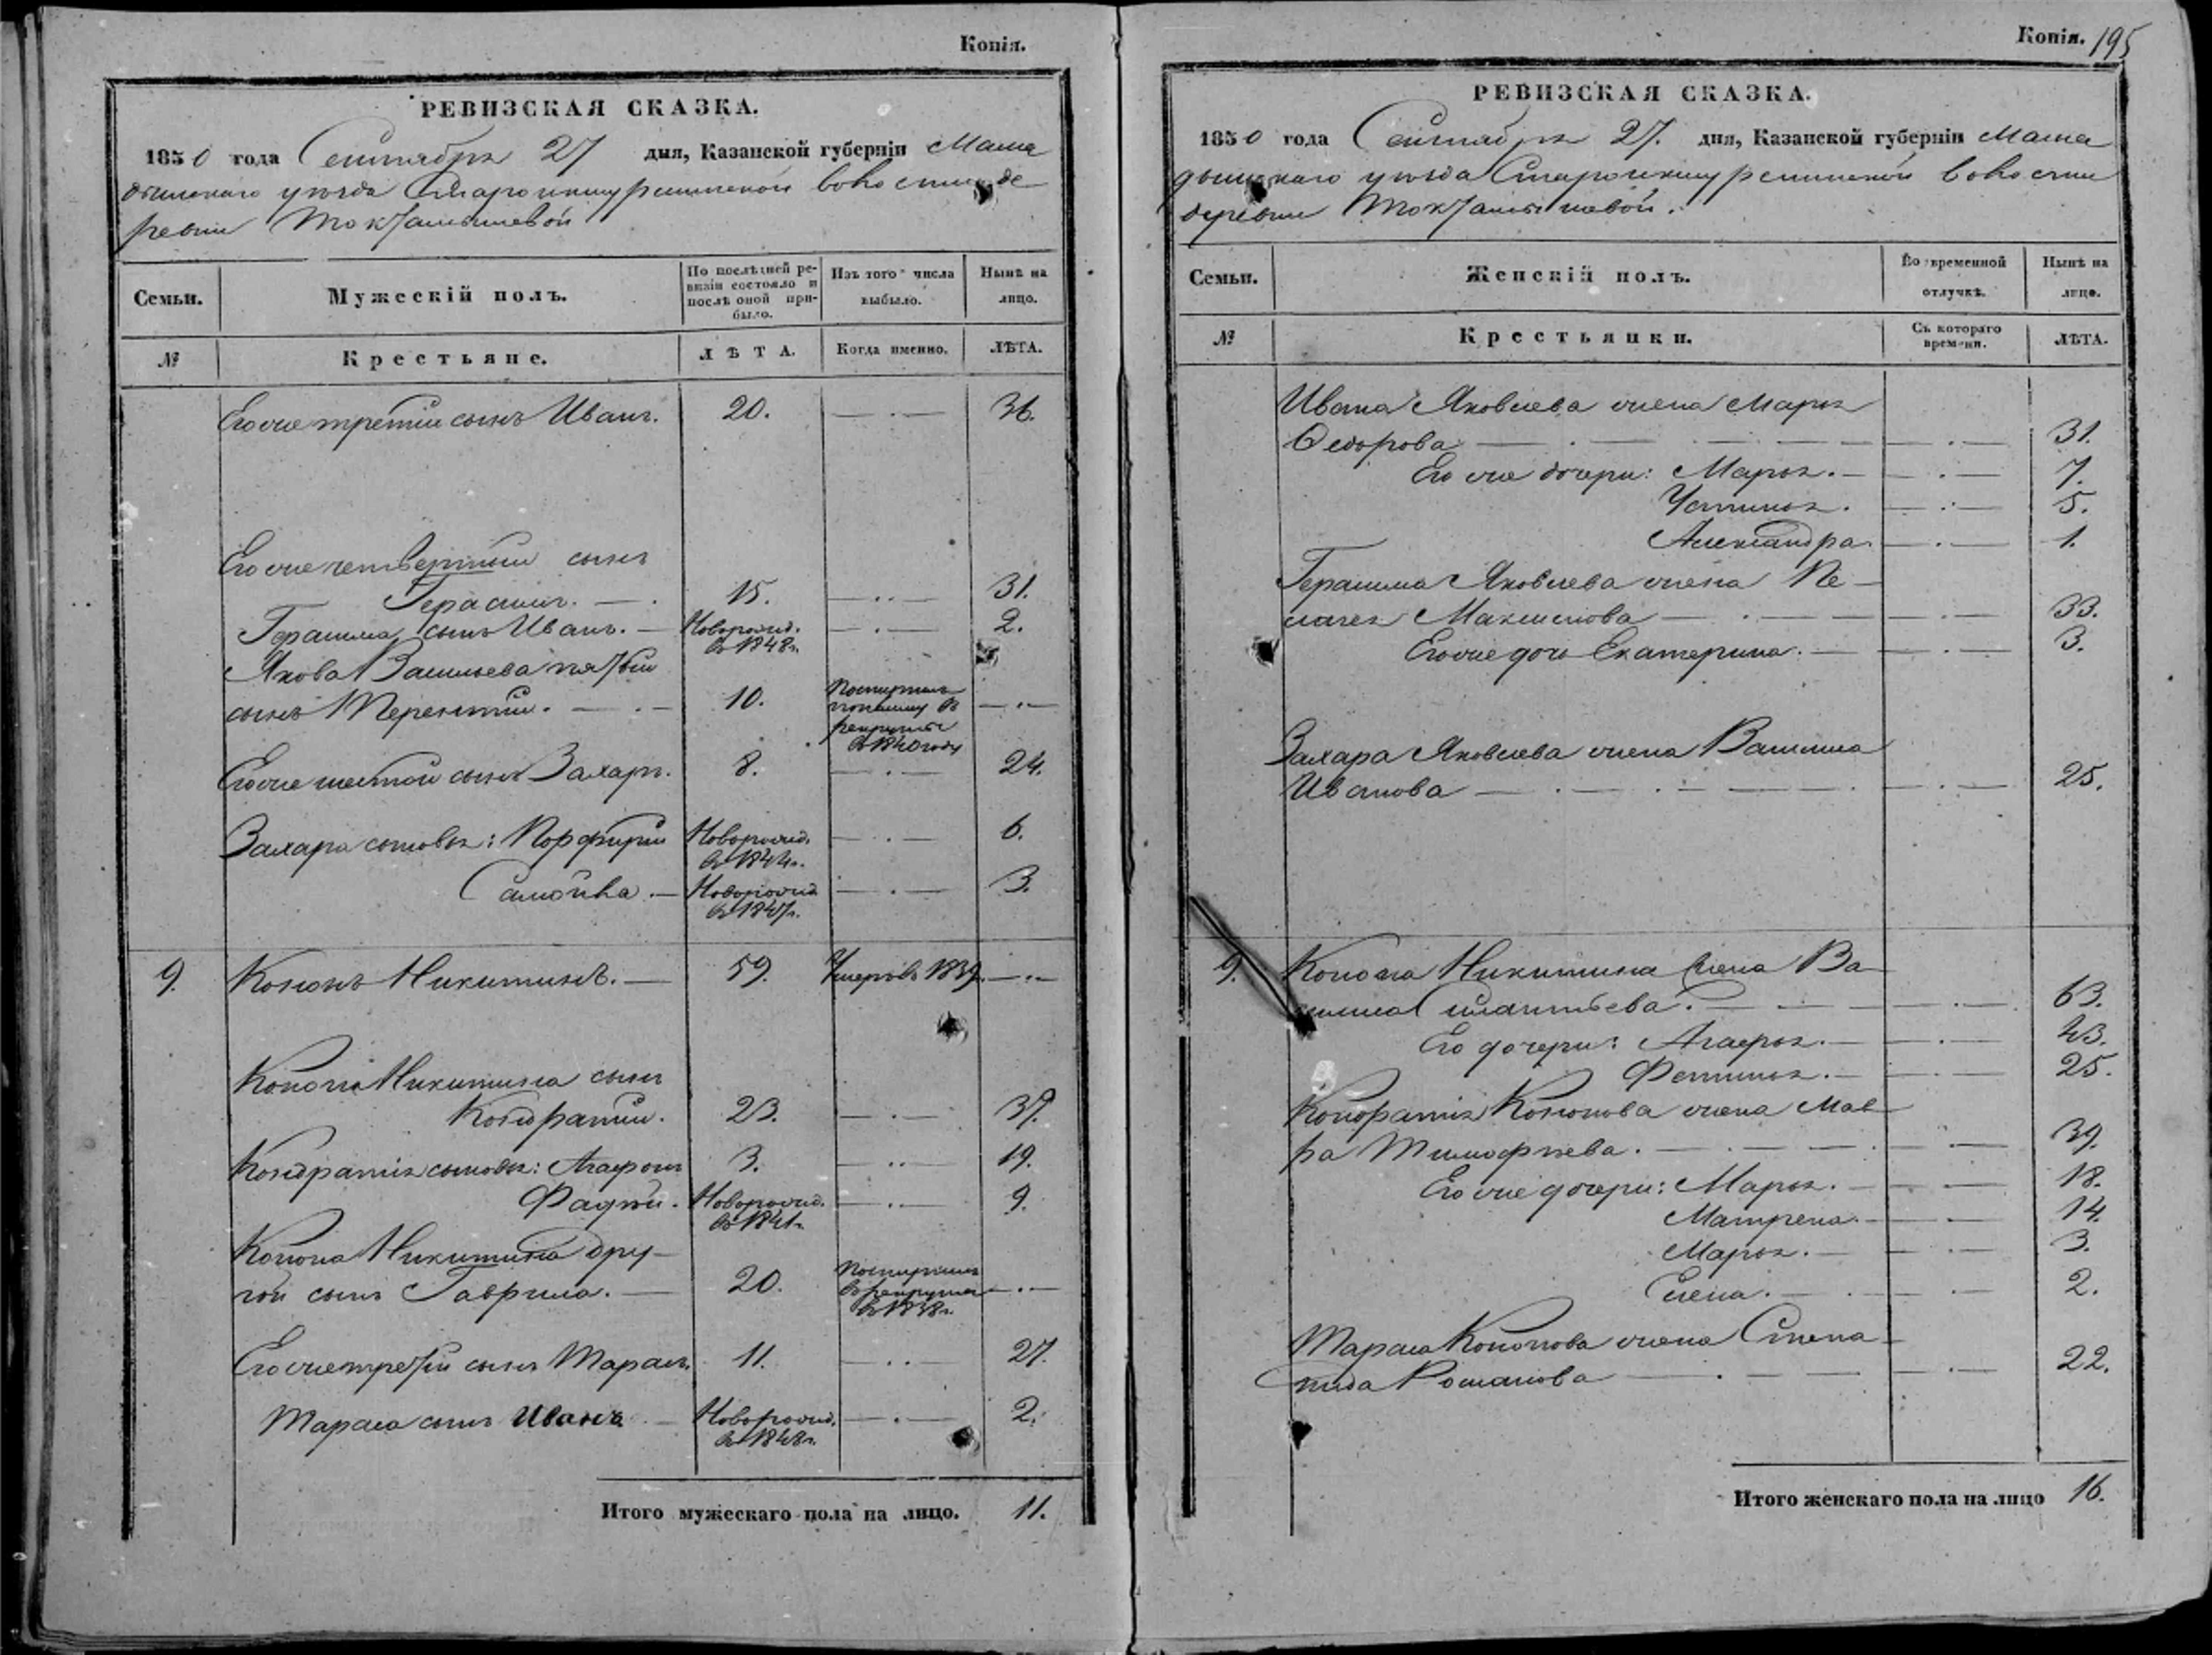 Копія.
РЕВИЗСКАЯ СКАЗКА.
1850 года Сентября 27 дня, Казанской губерніи Мама
дышскаго уѣзда Старо волости де
ревни Токтамышевой
Семьи.
Мужескій полъ.
По послѣдней ре-
визіи состояло и
послѣ оной при-
было.
Изъ того числа
выбыло.
Нынѣ на
лицо.
№
Крестьяне.
ЛѢТА.
Когда именно.
ЛѢТА.
Его же третій сынъ Иванъ. 20. — . — 36.
Его же четвертый сынъ
Герасимъ. — . 15. — .. — 31.
Герасима сынъ Иванъ. — Новорожд. — . — 2.
въ 1848 г.
Якова Васильева пятый
сынъ Терентій. — . — 10. Поступилъ — .. —
въ
рекруты
въ 1840 году
Его же шестой сынъ Захаръ. 8. — . — 24.
Захара сыновья: Порфирій Новорожд. — . — 6.
въ 1844 г.
Самойла. — Новорожд. — . — 3.
въ 1847 г.
9. Кононъ Никитинъ. — 59. Умеръ въ 1839. — .. —
Конона Никитина сынъ
Кондратій. 23. — . — 39.
Кондратія сыновья: Агафонъ 3. — .. — 19.
Фадѣй. Новорожд. — .. — 9.
въ 1841 г.
Конона Никитина дру-
гой сынъ Гаврила. — 20. Поступилъ — . —
въ рекруты
въ 1838 г.
Его же третій сынъ Тарасъ 11. — .. — 27.
Тараса сынъ Иванъ — Новорожд. — . — 2.
въ 1848 г.
Итого мужескаго пола на лицо. 11.
Копія. 195
РЕВИЗСКАЯ СКАЗКА.
1850 года Сентября 27. дня, Казанской губерніи Мама
дышскаго уѣзда Старо волости
деревни Токтамышевой.
Семьи.
Женскій полъ.
Во временной
отлучкѣ.
Нынѣ на
лицо.
№
Крестьянки.
Съ котораго
времени.
ЛѢТА.
Ивана Яковлева жена Марья
Ѳедорова — . — — . — 31.
Его же дочери: Марья. — — . — 7.
Устинья. — . — 5.
Александра. — . — 1.
Герасима Яковлева жена Пе-
лагея Максимова — . — — . — 33.
Его же дочь Екатерина. — — . — 3.
Захара Яковлева жена Василиса
Иванова — . — . — — . — 25.
9. Конона Никитина жена Ва-
силиса . — — . — 63.
Его дочери: Агафья. — — . — 43.
Фетинья. — — . — 25.
Кондратія Кононова жена Мав-
ра Тимофѣева. — . — . — 39.
Его же дочери: Марья. — — . — 18.
Матрена. — — . — 14.
Марья. — — . — 3.
Елена. — . — . — 2.
Тараса Кононова жена Степа-
нида Романова — . — — . — 22.
Итого женскаго пола на лицо 16.